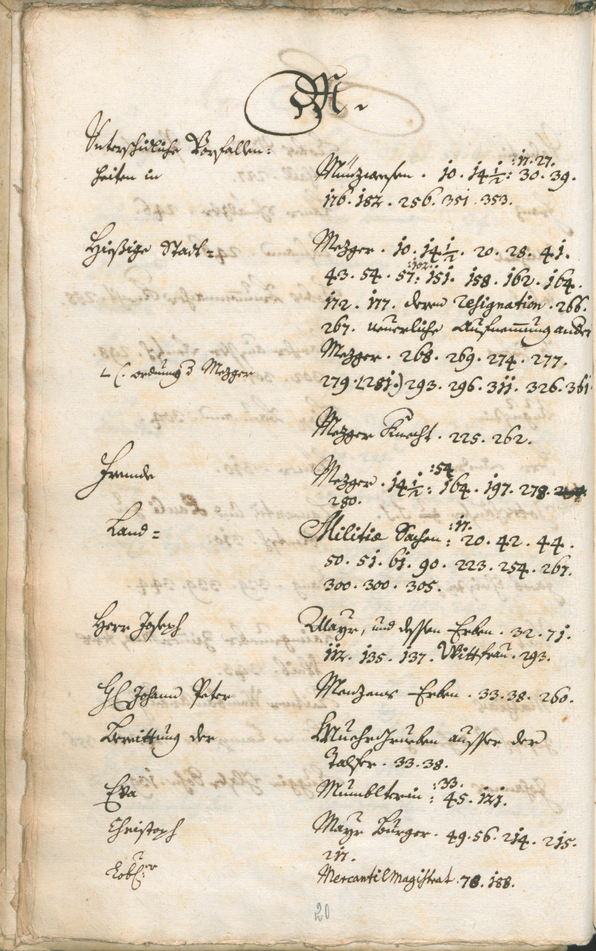 M.
Unterschidliche Vorfallen:
heiten in Münzwesen. 10. 14½: :17. 27. 30. 39.
176. 182. 256. 351. 353.
Hiesige Stadt= Mezger. 10. 14½. 20. 28. 41.
43. 54. 57: :102: 151. 158. 162. 164.
172. 177. deren resignation. 266.
267. neuerliche Aufnemung ander
Mezger. 268. 269. 274. 277.
(: ordnung d Mezger 279. (281.) 293. 296. 311. 326. 361.
Mezger Knecht. 225. 262.
Fremde Mezger. 14½: :54. 164. 197. 278.
280.
Land= Militiæ Sachen: :17. 20. 42. 44.
50. 51. 61. 90. 223. 254. 267.
300. 300. 305.
Herr Joseph Mayr, und dessen Erben. 32. 71.
112. 135. 137. Wittfrau. 293.
H: Johann Peter Menzens Erben. 33. 38. 260.
Bereittung der Muhrgrueben ausser der
Talfer. 33. 38.
Eva Mumblterin: :33. 45. 121.
Christoph Mayr Burger. 49. 56. 214. 215.
217.
Löbl:r Mercantil Magistrat. 78. 188.
20